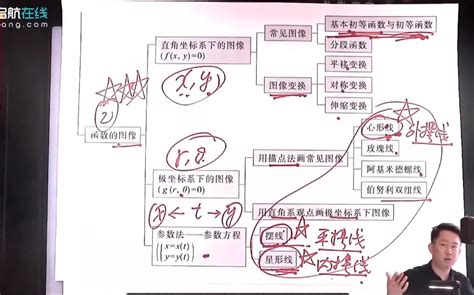 启航在线
ang.com
直角坐标系下的图像
(f(x, y)=0)
常见图像
基本初等函数与初等函数
分段函数
图像变换
平移变换
对称变换
伸缩变换
x, y
2
函数的图像
r, θ
极坐标系下的图像
(g(r, θ)=0)
用描点法画常见图像
心形线
外摆线
玫瑰线
阿基米德螺线
伯努利双纽线
用直角系观点画极坐标系下图像
x ← t → y
参数法——参数方程
x=x(t)
y=y(t)
摆线
平摆线
星形线
内摆线